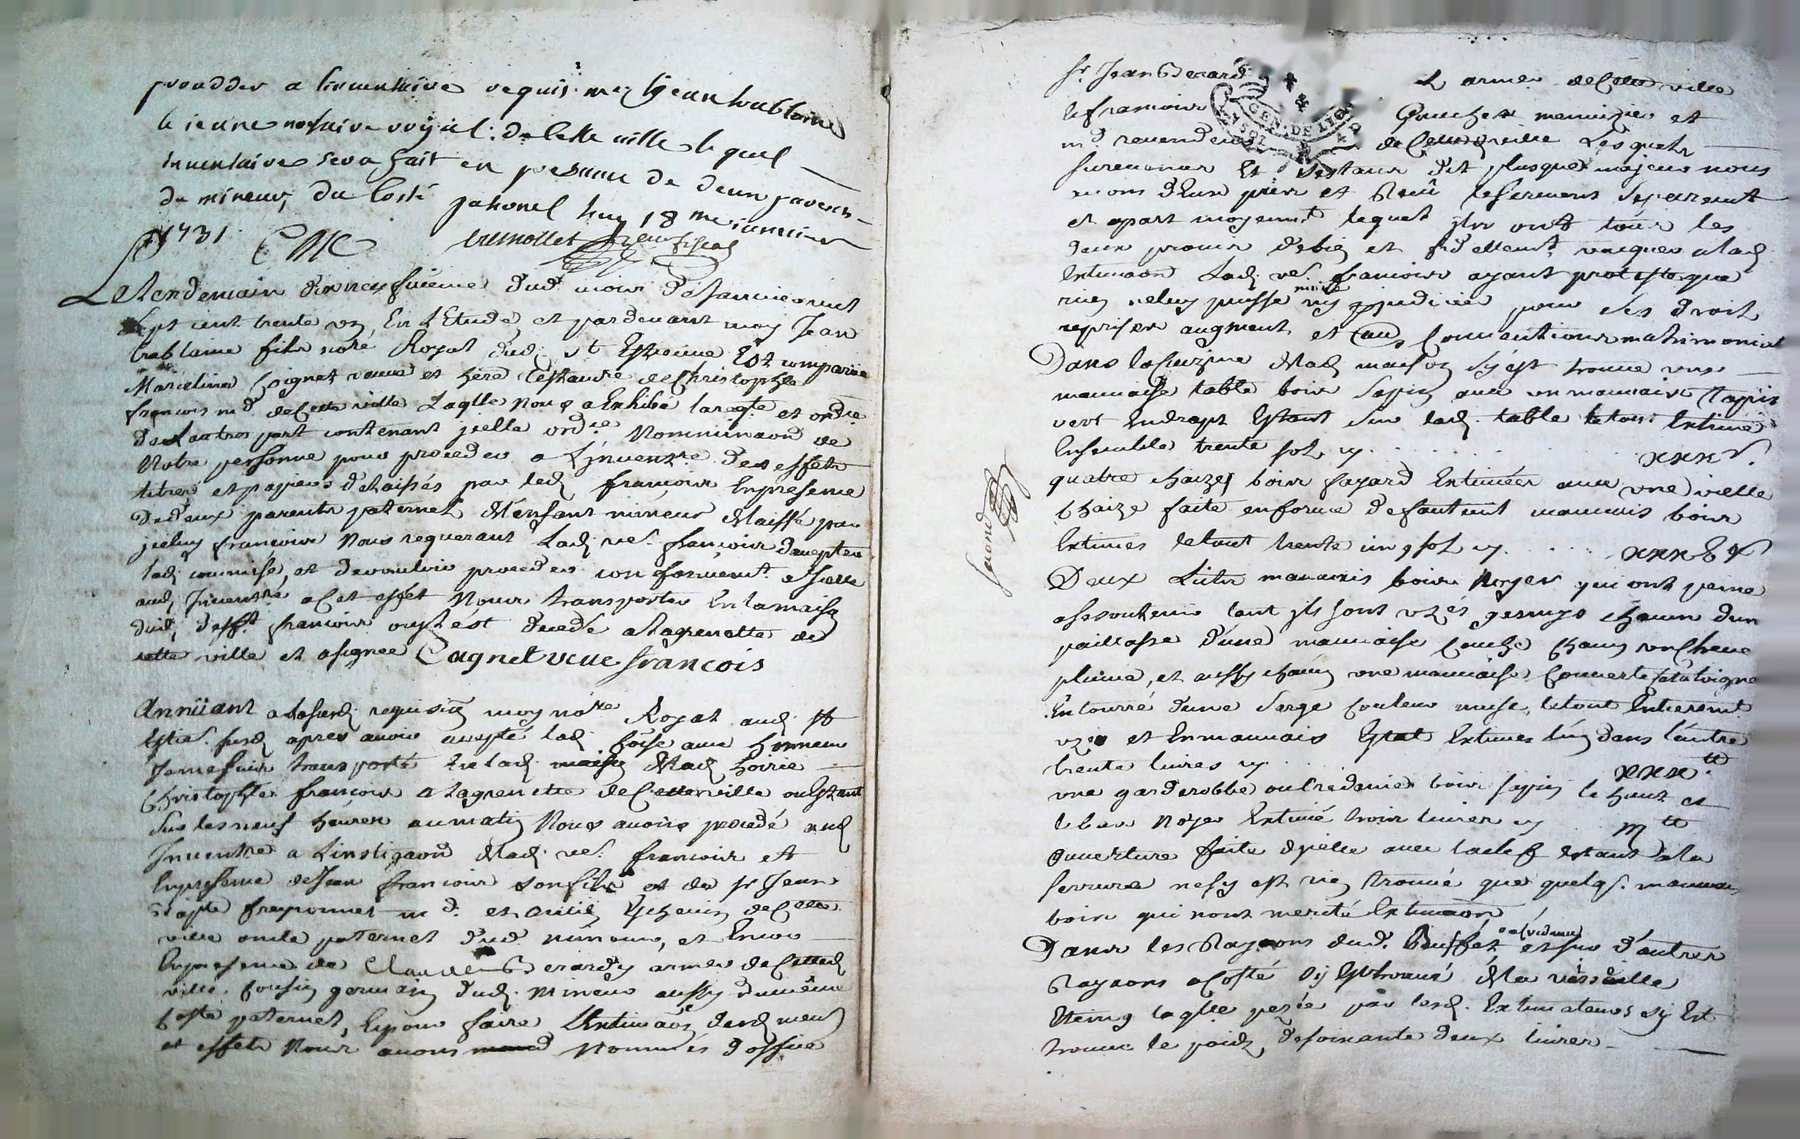 proceder a linventaire requis me Jean trablaine
le jeune notaire royal de cette ville lequel
Inventaire sera fait en presence de deux parens
du mineur, du Costé paternel huy 18me janvier
1731
Le lendemain dix neufvieme dud. mois de Janvier mil
sept cent trente un, En L'Etude, et pardevant moy Jean
trablaine fils nore Royal dud. st Estienne Est comparue
Marcelline Coignet veuve et here testamre de Christophle
françois md. de Cette ville Laqlle Nous a Exhibé la reqte et ordce
de Lautre part contenant jcelle ordce Nominaon de
Notre personne pour proceder a L'jnventre des effets
titres et papiers delaissés par led. françois En presence
de deux parents paternels de L'enfant mineur delaissé par
jceluy françois Nous requerant Lad. ve. françois d'accepter
lad. commise, et de vouloir proceder conformement a jcelle
aud. Jnventre a Cet effet Nous transporter En la maison
dud. defft. françois ou il est decedé a la grenette de
cette ville et a signée Cagnet veue francois
Annüant a la susd. requision moy nore Royal aud. st
Estie. susd. apres avoir accepté lad. Coise avec honneur
Je me suis transporté En lad. maison de lad. hoirie
Christophle françois a la grenette de Cette ville ou Estant
Sur les neuf heures au matin Nous avons procedé aud.
Inventre a L'instigaon de lad. ve. françois et
En presence de Jean françois son fils et de sr Jean
Bapte freyconnet md. et ancien Echevin de Cette
ville oncle paternel dud. mineur, et Encore
En presence de Claude Berardy armer de Cette
ville Cousin germain dud. Mineur aussy du même
Costé paternel, Et pour faire L'estimaon desd. meub.
et effets Nous avons Nommés d'office
sr Jean Berard armer de Cette ville
le francois Gouchet menuizier et
md revendeur de Cette ville Lesquels
survenans Et Estans dit plusque majeurs nous
avons d'Eux pris et Receu le serment separement
et apart moyennt. lequel jls ont tous les
deux promis de bien et fidellemt. vacquer a lad.
Estimaon Lad. ve. françois ayant protesté que
rien ne luy puisse nuire ny prejudicier pour ses droits
reprises augment et aues. Conventions matrimonial
Dans la Cuizine de lad. maison s'y est trouvé une
mauvaise table bois sapin avec un mauvais tapis
vert En drapt Estant Sur lad. table le tout Estimé
Ensemble trente sols cy . . . xxx s.
quatre chaizes bois fayard Estimées avec une vielle
Chaize faite en forme de fauteuil mauvais bois
Estimés le tout trente cinq sols cy . . . . xxxv s
Deux Lits mauvais bois Noyer qui ont peine
a se soutenir tant jls sont uzés garnys chacun d'un
paillasse d'une mauvaise Couche Chacun un Chevet
plume, et aussy chacun une mauvaise Couverte Catalogne
Entourré d'une Serge Couleur muse, le tout Entierement
uzé et En mauvais Estat Estimés L'un dans L'autre
trente livres cy . xxx tt
une garderobbe ou Credence bois sapin le haut et
le bas Noyer Estimé trois livres cy . . . III tt
ouverture faite d'jcelle avec la clef Estant a la
serrure ne s'y est rien trouvé que quelqs. mauvais
bois qui n'ont merité Estimaon
Dans les Rayons dud. Buffet ou Credence et sur d'autres
Rayons a Costé s'y Est trouvé de la vaisselle
Etaing laqlle pesée par lesd. Estimateurs s'y Est
trouvé le poids de soixante deux livres